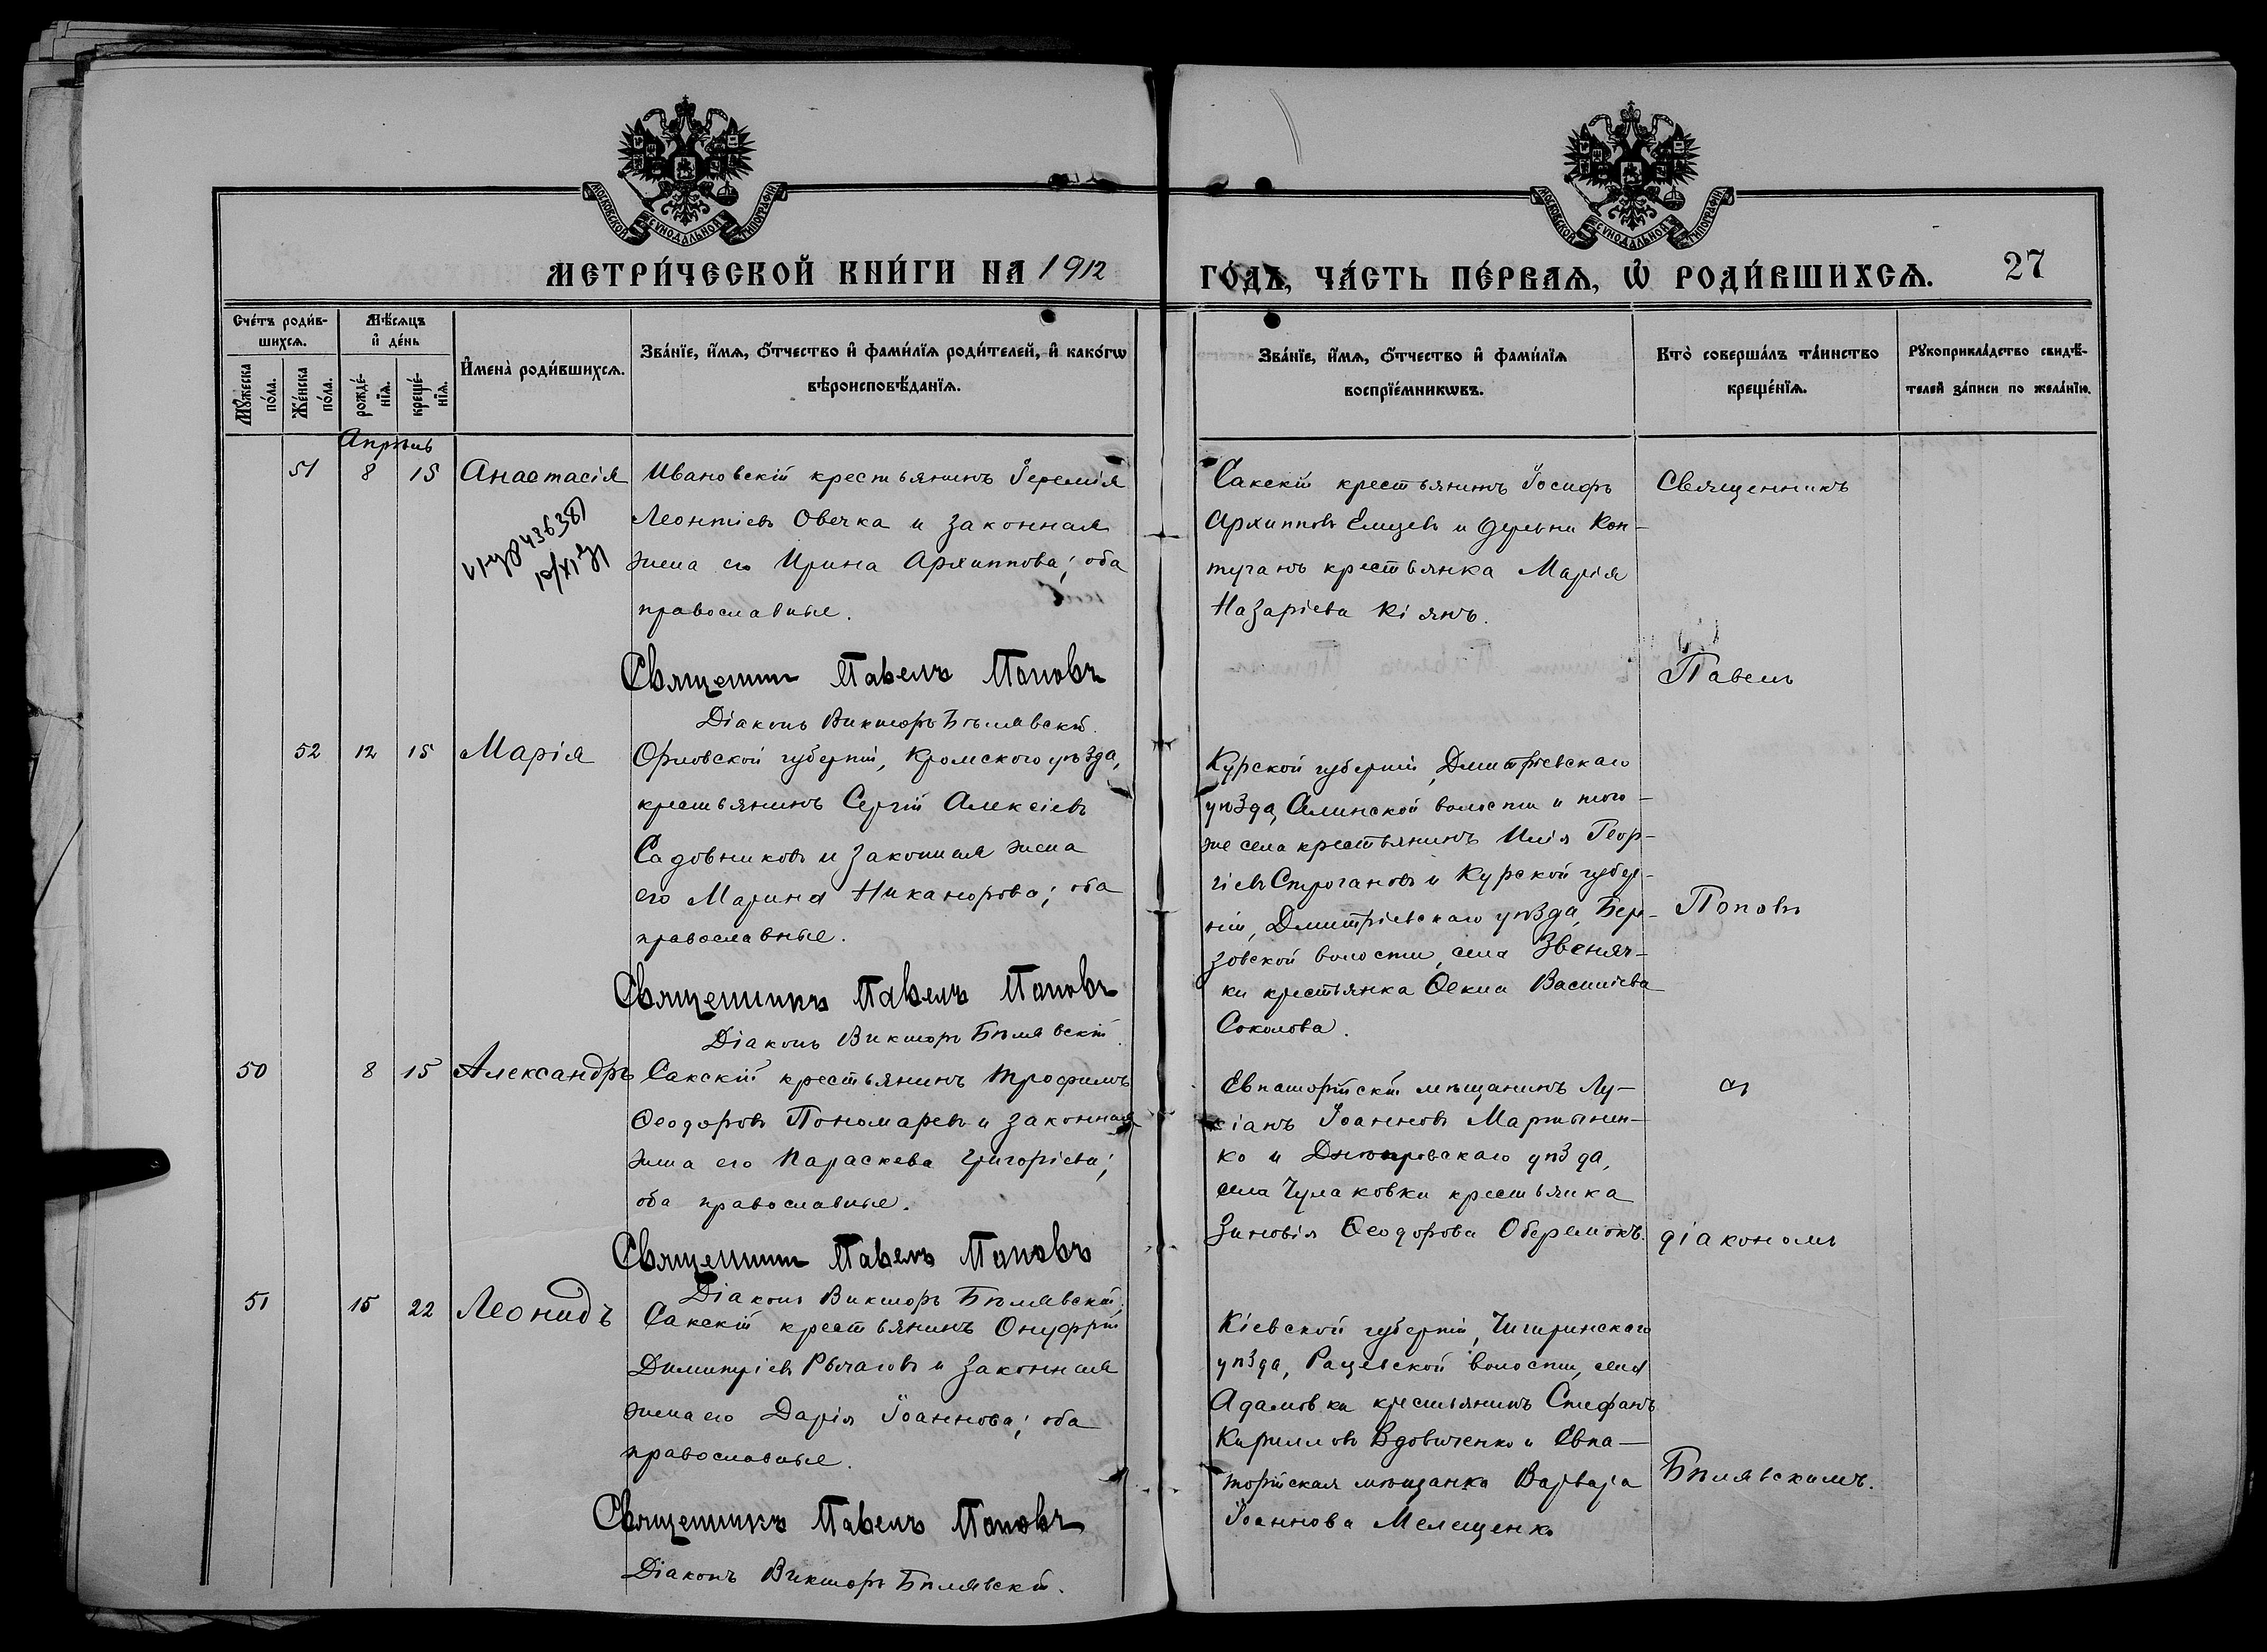 МОСКОВСКОЙ СѴНОДАЛЬНОЙ ТИПОГРАФІИ
МОСКОВСКОЙ СѴНОДАЛЬНОЙ ТИПОГРАФІИ
МЕТРИ́ЧЕСКОЙ КНИ́ГИ НА 1912
ГО́ДЪ, ЧА́СТЬ ПЕ́РВАѦ, Ѡ҆ РОДИ́ВШИХСѦ. 27
Сче́тъ роди́в-
шихсѧ.
Мꙋ́жеска по́ла.
Же́нска по́ла.
Мѣ́сѧцъ
и҆ де́нь
рожде́-
нїѧ.
креще́-
нїѧ.
И҆мена̀ роди́вшихсѧ.
Зва́нїе, и҆́мѧ, ѻ҆́тчество и҆ фами́лїѧ роди́телей, и҆ како́гѡ
вѣроисповѣ́данїѧ.
Зва́нїе, и҆́мѧ, ѻ҆́тчество и҆ фами́лїѧ
воспрїе́мникѡвъ.
Кто̀ соверша́лъ та́инство
креще́нїѧ.
Рꙋкоприкла́дство свидѣ́-
телей за́писи по жела́нїю.
Апрѣль
51 8 15 Анастасія
Ивановскій крестьянинъ Іеремія
Леонтіевъ Овечка и законная
жена его Ирина Архиппова; оба
православные.
Священник Павелъ Поповъ
Діаконъ Викторъ Бѣлявскій.
Сакскій крестьянинъ Іосифъ
Архипповъ Елицевъ и деревни Кон-
туганъ крестьянка Марія
Назаріева Кіянъ.
Священникъ
Павелъ
52 12 15 Марія
Орловской губерніи, Кромского уѣзда,
крестьянинъ Сергій Алексіевъ
Садовниковъ и законная жена
его Марина Никанорова; оба
православные.
Священникъ Павелъ Поповъ
Діаконъ Викторъ Бѣлявскій.
Курской губерніи, Дмитріевскаго
уѣзда, волости и того-
же села крестьянинъ Илія Геор-
гіевъ Строгановъ и Курской губер-
ніи, Дмитріевскаго уѣзда, Бер-
зовской волости, села Звеняч-
ки крестьянка Ѳекла Васильева
Соколова.
Поповъ
50 8 15 Александръ
Сакскій крестьянинъ Трофимъ
Ѳеодоровъ Пономаревъ и законная
жена его Параскева Григоріева;
оба православные.
Священник Павелъ Поповъ
Діаконъ Викторъ Бѣлявскій.
Евпаторійскій мѣщанинъ Лу-
кіанъ Іоанновъ Мартынен-
ко и Днѣпровскаго уѣзда,
села Чулаковки крестьянка
Зиновія Ѳеодорова Оберемокъ.
съ
діакономъ
51 15 22 Леонидъ
Сакскій крестьянинъ Онуфрій
Димитріевъ Рычаговъ и законная
жена его Дарія Іоаннова; оба
православные.
Священникъ Павелъ Поповъ
Діаконъ Викторъ Бѣлявскій.
Кіевской губерніи, Чигиринскаго
уѣзда, Рацевской волости, села
Адамовки крестьянинъ Стефанъ
Кирилловъ Вдовиченко и Евпа-
торійская мѣщанка Варвара
Іоаннова Мелещенко
Бѣлявскимъ.